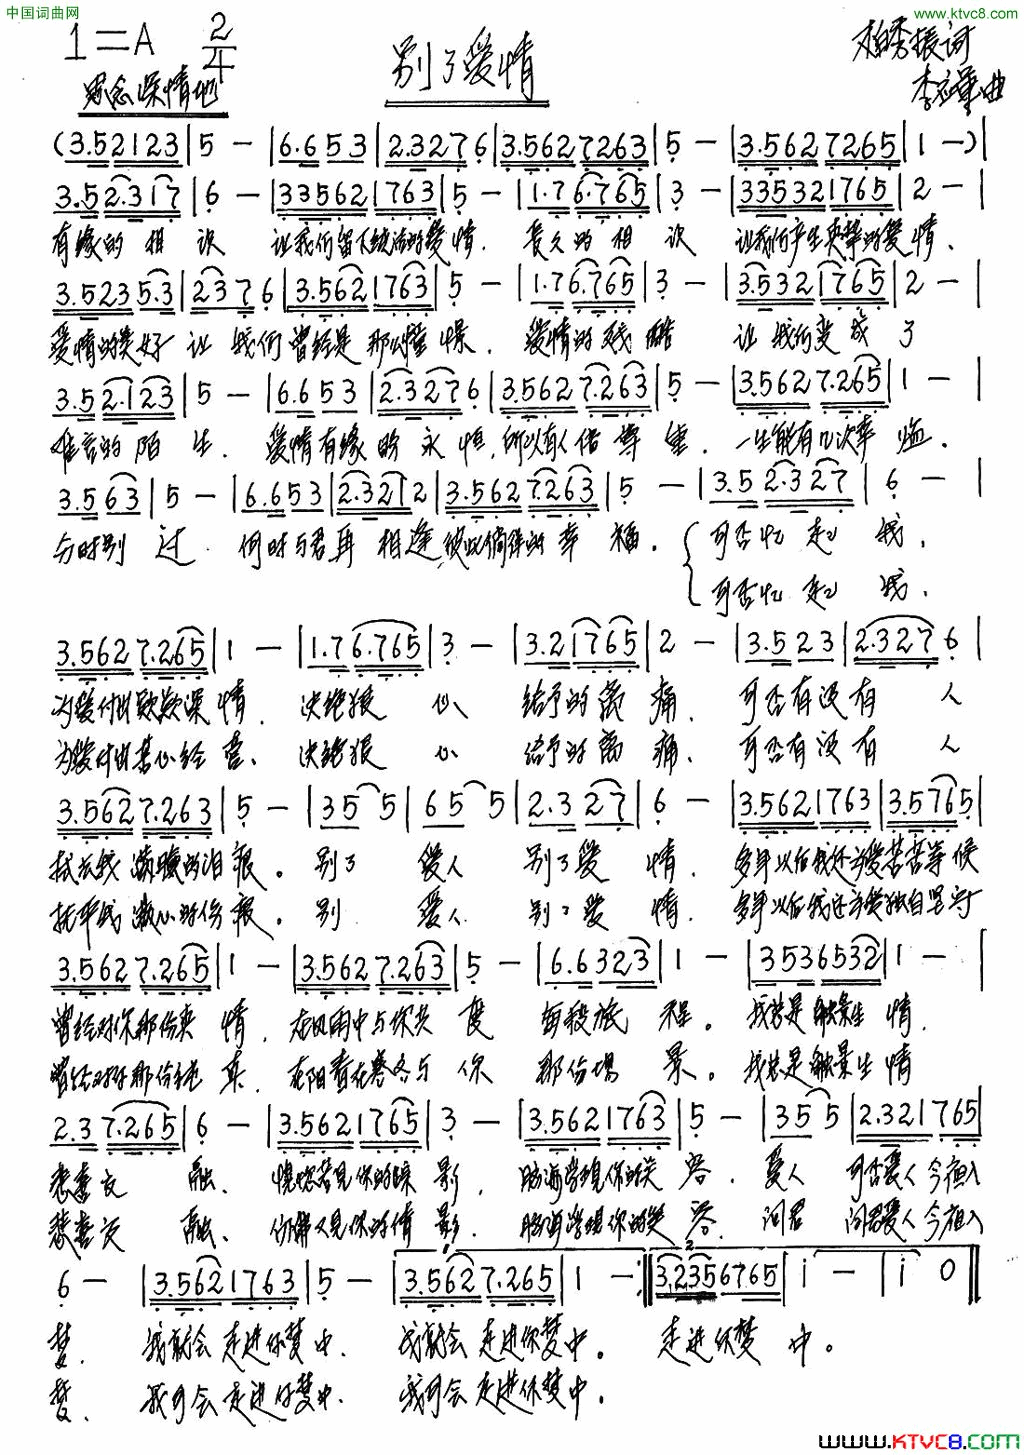 中国词曲网
www.ktvc8.com
1=A 2/4
别了爱情
柏秀振词
思念深情地
李 曲
(3.52123|5 -|6.6 53|2.3276|3.5627263|5 -|3.5627265|1 -)|
3.52.317|6 -|335621763|5 -|1.76.765|3 -|335321765|2 -|
有缘的相识 让我们留下 的爱情. 长久的相识 让我们产生 的爱情.
3.5235.3|2376|3.5621763|5 -|1.76.765|3 -|3.5321765|2 -|
爱情的美好 让我们曾经是那么憧憬. 爱情的残酷 让我们变成了
3.52.123|5 -|6.6 53|2.3276|3.5627.263|5 -|3.5627.265|1 -|
难言的陌生. 爱情有缘 永恒, 所以有人 一生能有几次幸
3.563|5 -|6.653|2.3212|3.5627.263|5 -|3.52.327|6 -|
别过. 何时与君再相逢 的幸福. 可否忆起我,
可否忆起 我.
3.5627.265|1 -|1.76.765|3 -|3.21765|2 -|3.523|2.3276|
为爱付出款款深情. 决绝狠心 给予的离痛. 可否有没有人
为爱付出苦心经营. 决绝狠心 给予的离痛. 可否有没有人
3.5627.263|5 -|35 5|65 5|2.3 27|6 -|3.5621763|3.5765|
拭去我满腹的泪痕。别了爱人 别了爱情. 多年以后我还 爱苦苦等候
抚平我 心的伤痕。别 爱人 别了爱情. 多年以后我还 爱独自坚守
3.5627.265|1 -|3.5627.263|5 -|6.6323|1 -|3536532|1 -|
曾经对你那份 情. 在风雨中与你共度每段旅程。我总是触景生情.
曾经对你那份纯真. 在 春在寒冬与你那份 景。我总是触景生情
2.37.265|6 -|3.5621765|3 -|3.5621763|5 -|35 5|2.321765|
悲喜交融. 恍惚若见你的踪影. 脑海常现你的笑容. 爱人 可否爱人今夜入
悲喜交融. 仿佛又见你的倩影. 脑海常现你的笑容. 问君 问君爱人今夜入
6 -|3.5621763|5 -|3.5627.265|1 -:‖3.2356765|i -|i 0‖
梦. 我就会走进你梦中. 我就会走进你梦中。走进你梦中。
梦. 我可会走进你梦中. 我可会走进你梦中。
www.KTVC8.com